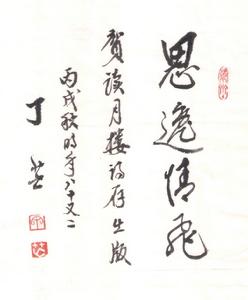 思逸情飛
賀读月樓诗存出版
丙戌秋时年八十又二
丁芒